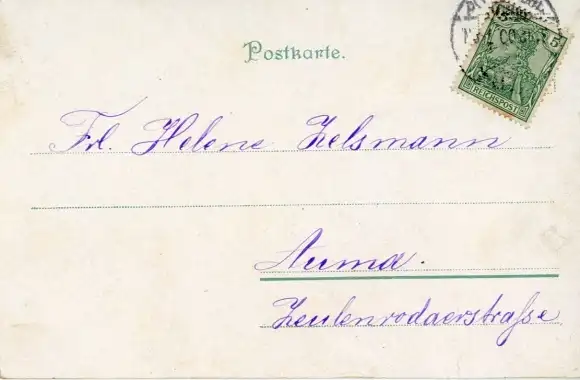 Postkarte.
5
REICHSPOST
Frl. Helene Zelsmann
Auma.
Zeulenrodaerstraße